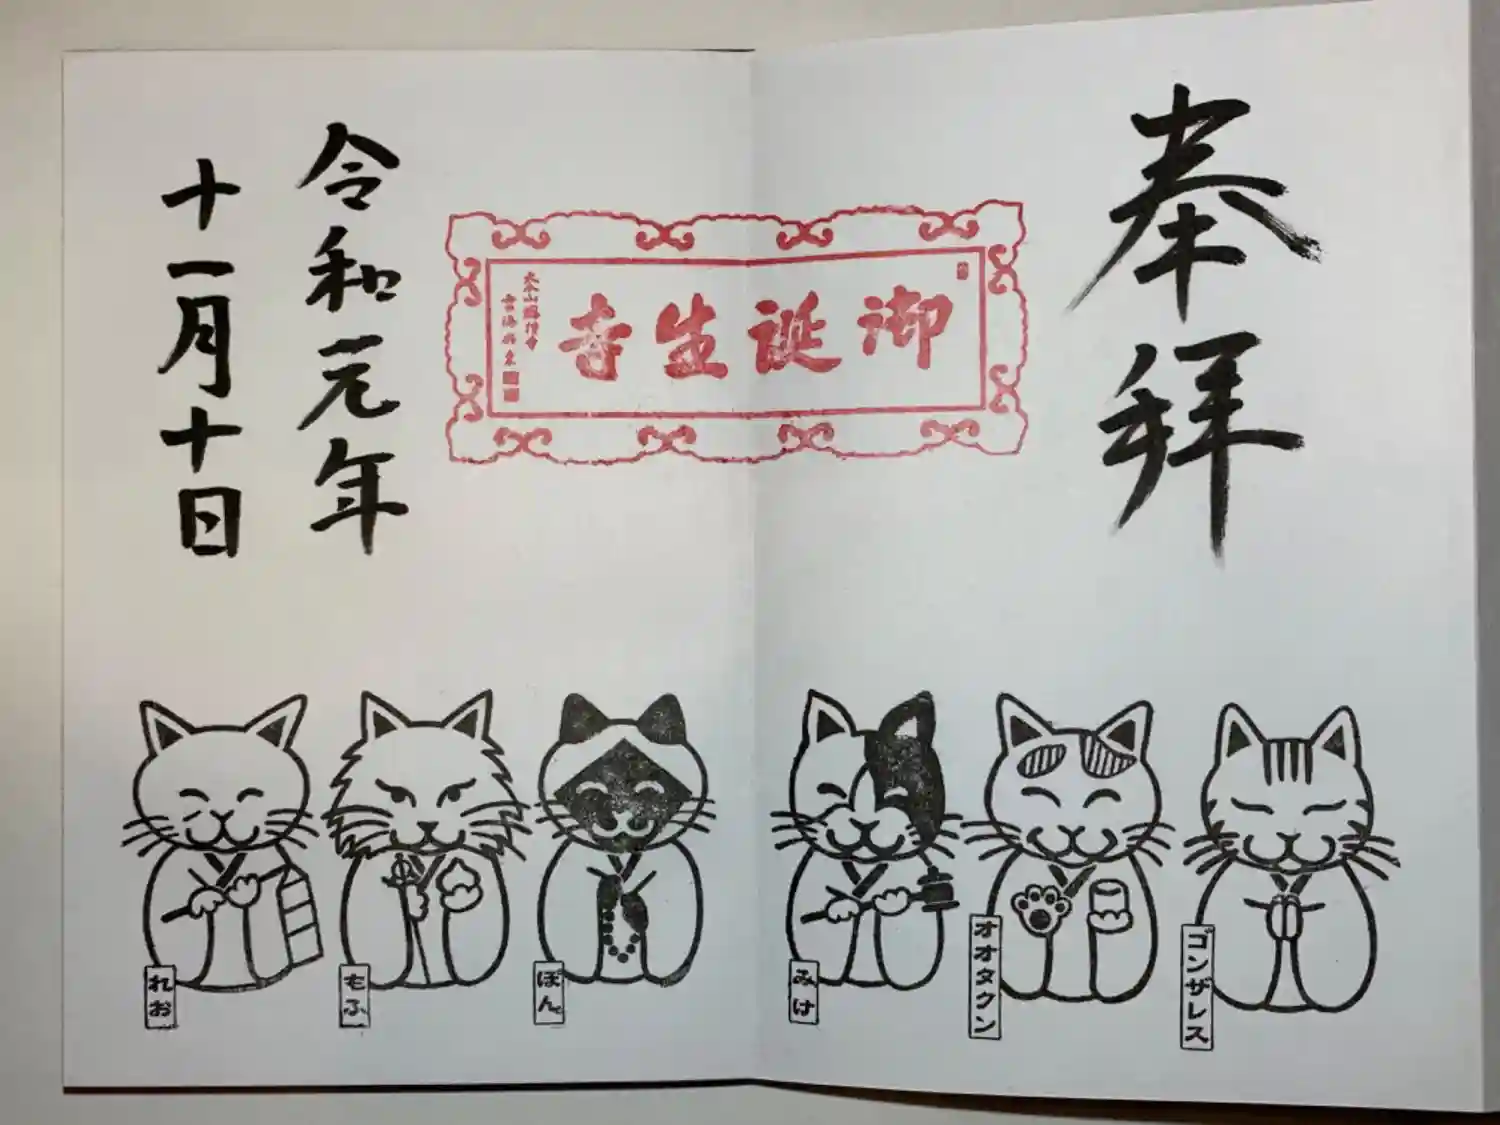 奉拝
御誕生寺
令和元年
十一月十日
ゴンザレス
オオタクン
みけ
ぽん。
もふ
れお